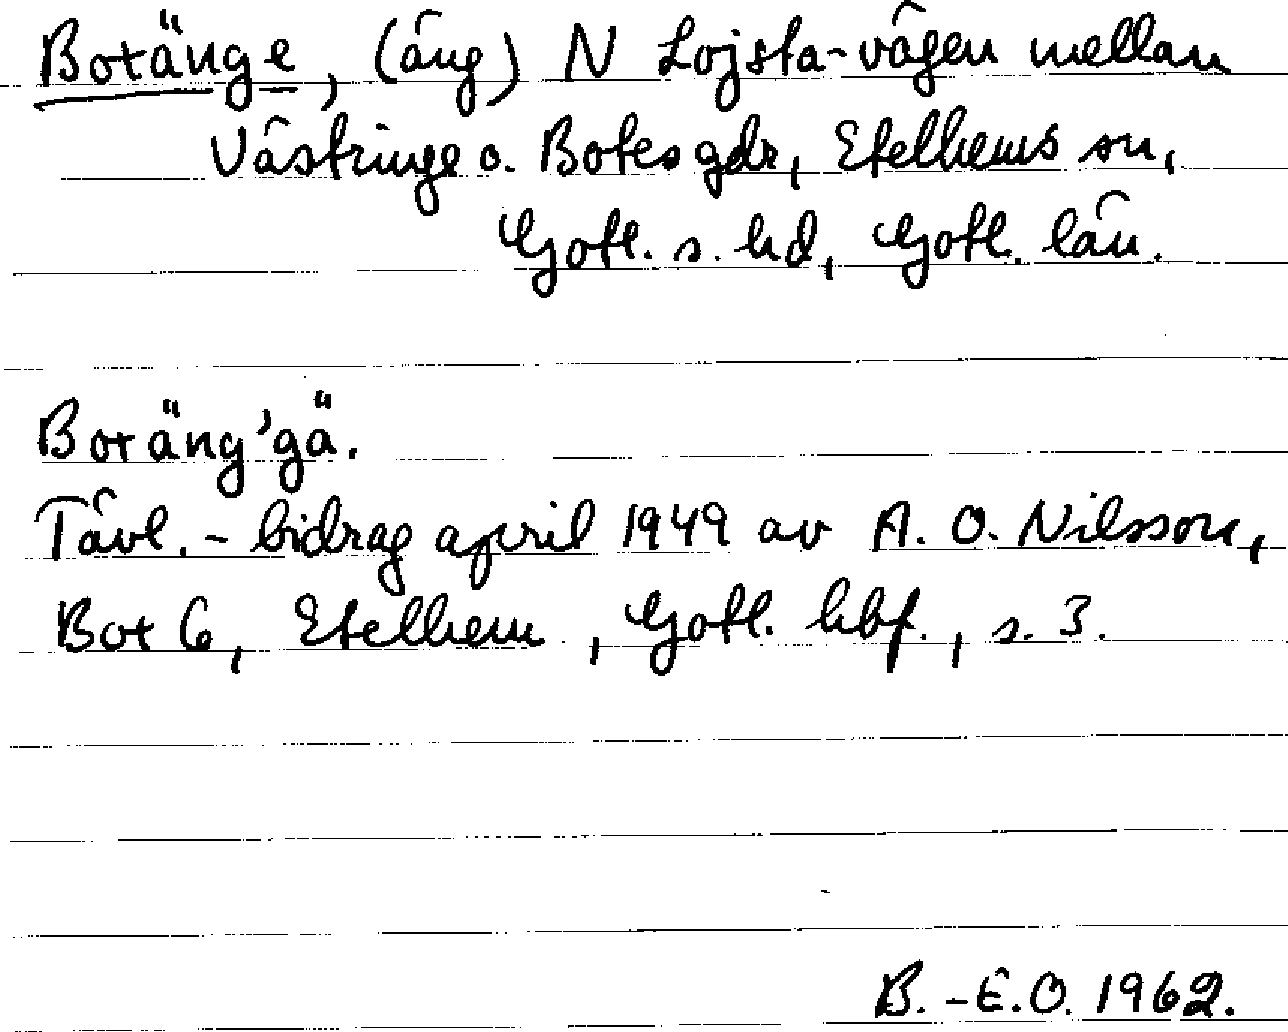 Botänge, (äng) N Lojsta-vägen mellan
Västringe o. Botes gdr, Etelhems sn,
Gotl. s. hd, Gotl. län.
Botäng'gä.
Tävl.- bidrag april 1949 av A. O. Nilsson,
Bot 6, Etelhem, Gotl. hbf., s. 3.
B.-E.O. 1962.